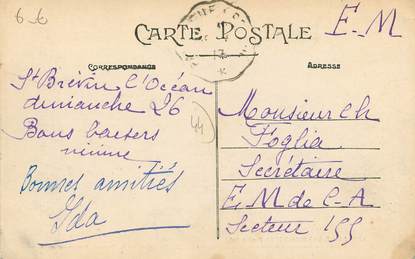 6 6
E-M
CARTE POSTALE
CORRESPONDANCE
ADRESSE
St Brévin l'Océan
dimanche 26
Bons baisers
44
Bonnes amitiés
Ida
Monsieur Ch
Foglia
Secrétaire
E. M de C-A
Secteur 155